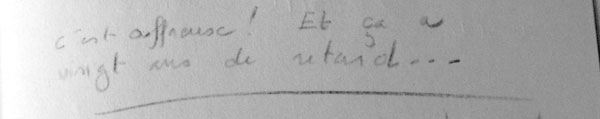 c'est affreux ! Et ça a
vingt ans de retard...